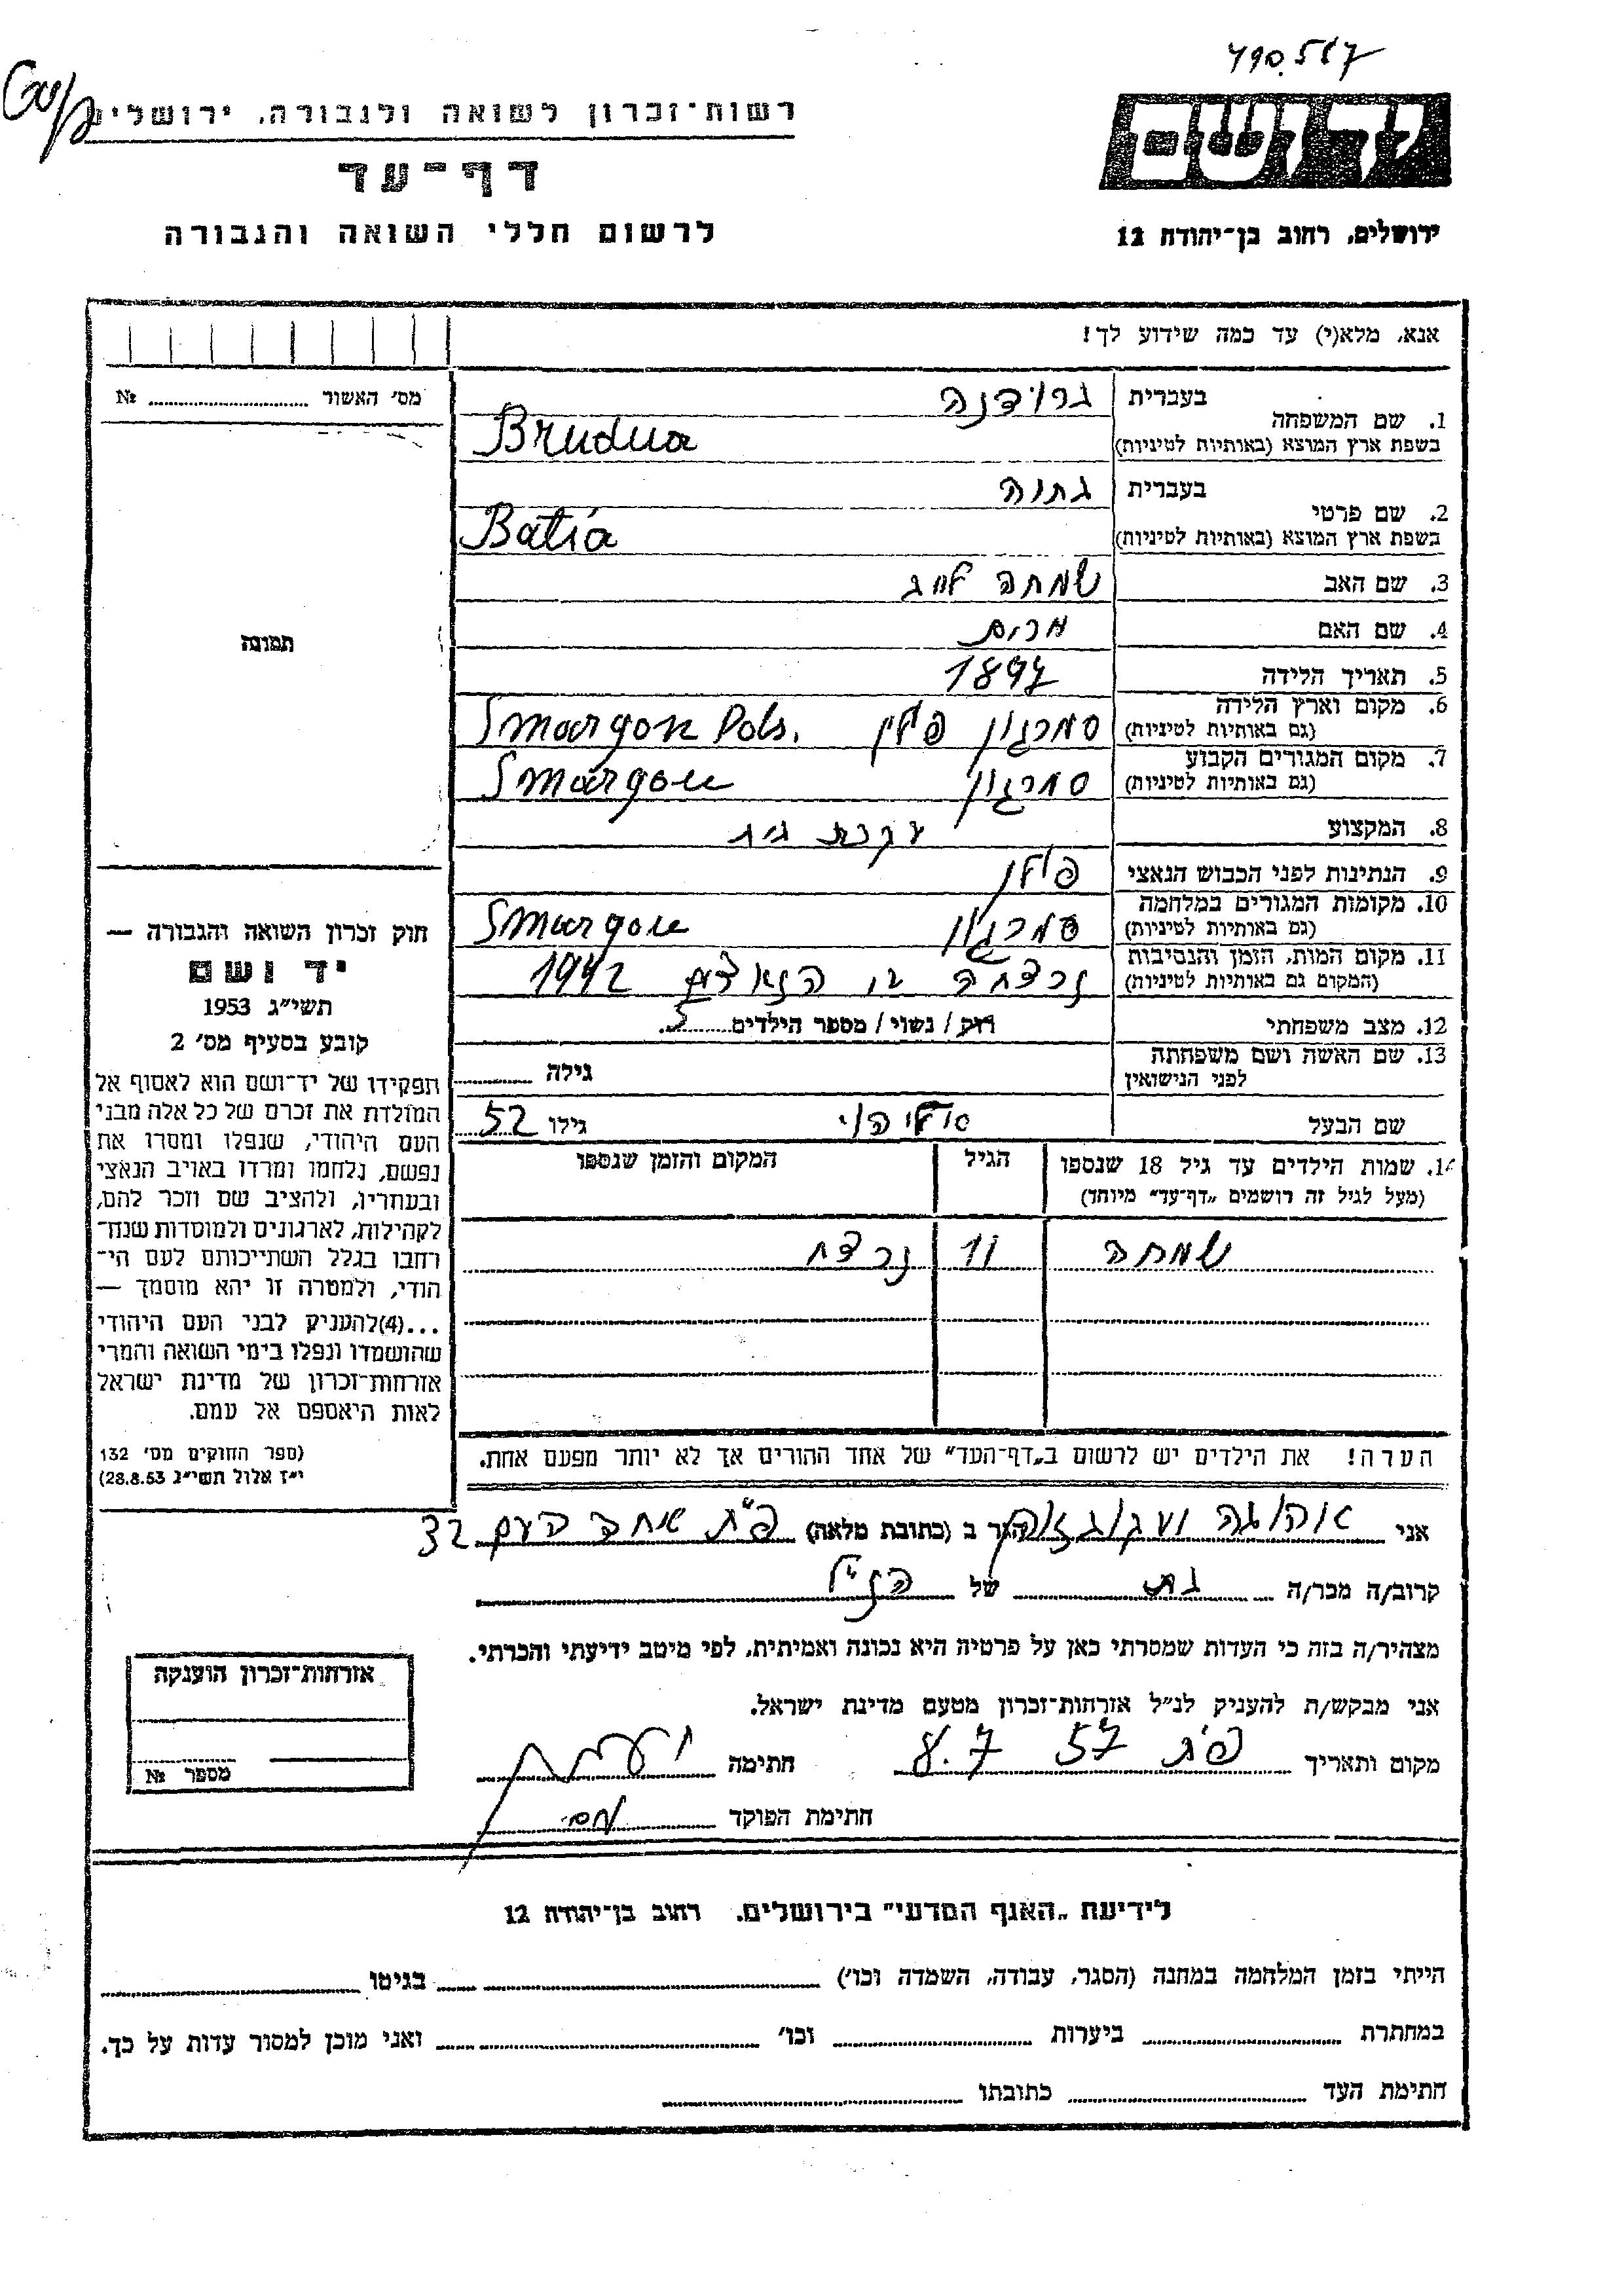 490.517
Cop
יד ושם
רשות-זכרון לשואה ולגבורה, ירושלים
דף-עד
ירושלים, רחוב בן-יהודה 12
לרשום חללי השואה והגבורה
אנא, מלא(י) עד כמה שידוע לך!
מס' האשור № 
1. שם המשפחה בעברית ברודנה
בשפת ארץ המוצא (באותיות לטיניות) Brudna
2. שם פרטי בעברית בתיה
בשפת ארץ המוצא (באותיות לטיניות) Batia
3. שם האב שמחה לייב
4. שם האם מרים
5. תאריך הלידה 1897
6. מקום וארץ הלידה (גם באותיות לטיניות) סמרגון פולין Smargon Pols.
7. מקום המגורים הקבוע (גם באותיות לטיניות) סמרגון Smargon
8. המקצוע עקרת בית
9. הנתינות לפני הכבוש הנאצי פולין
10. מקומות המגורים במלחמה (גם באותיות לטיניות) סמרגון Smargon
11. מקום המות, הזמן והנסיבות (המקום גם באותיות לטיניות) נרצחה ע"י הנאצים 1942
12. מצב משפחתי רוק / נשוי / מספר הילדים 5
13. שם האשה ושם משפחתה לפני הנישואין גילה
שם הבעל גילו 52
14. שמות הילדים עד גיל 18 שנספו הגיל המקום והזמן שנספו
(מעל לגיל זה רושמים "דף-עד" מיוחד)
שמחה 11 נרצח
הערה! את הילדים יש לרשום ב"דף-העד" של אחד ההורים אך לא יותר מפעם אחת.
תמונה
חוק זכרון השואה והגבורה —
יד ושם
תשי"ג 1953
קובע בסעיף מס' 2
תפקידו של יד-ושם הוא לאסוף אל
המולדת את זכרם של כל אלה מבני
העם היהודי, שנפלו ומסרו את
נפשם, נלחמו ומרדו באויב הנאצי
ובעוזריו, ולהציב שם וזכר להם,
לקהילות, לארגונים ולמוסדות שנח-
רבו בגלל השתייכותם לעם הי-
הודי, ולמטרה זו יהא מוסמך —
...(4)להעניק לבני העם היהודי
שהושמדו ונפלו בימי השואה והמרי
אזרחות-זכרון של מדינת ישראל
לאות היאספם אל עמם.
(ספר החוקים מס' 132
י"ז אלול תשי"ג 28.8.53)
אני אהובה הגר ב (כתובת מלאה) פ"ת אחד העם 32
קרוב/ה מכר/ה בת של הנ"ל
מצהיר/ה בזה כי העדות שמסרתי כאן על פרטיה היא נכונה ואמיתית, לפי מיטב ידיעתי והכרתי.
אני מבקש/ת להעניק לנ"ל אזרחות-זכרון מטעם מדינת ישראל.
מקום ותאריך פ"ת 8.7.57 חתימה
חתימת הפוקד
אזרחות-זכרון הוענקה
מספר №
לידיעת "האגף המדעי" בירושלים, רחוב בן-יהודה 12
הייתי בזמן המלחמה במחנה (הסגר, עבודה, השמדה וכו') בגיטו
במחתרת ביערות וכו' ואני מוכן למסור עדות על כך.
חתימת העד כתובתו